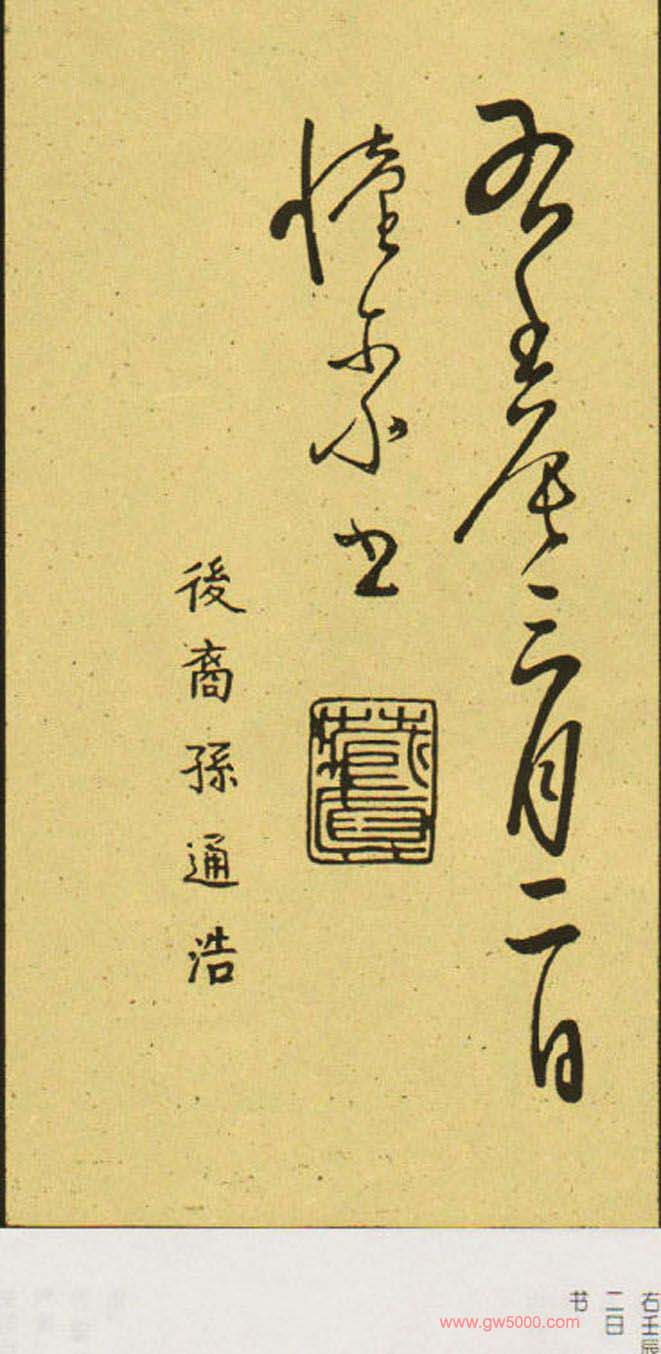 右壬辰三月二日
懷素書
藏真
後裔孫通浩
右壬辰
二日
书
www.gw5000.com